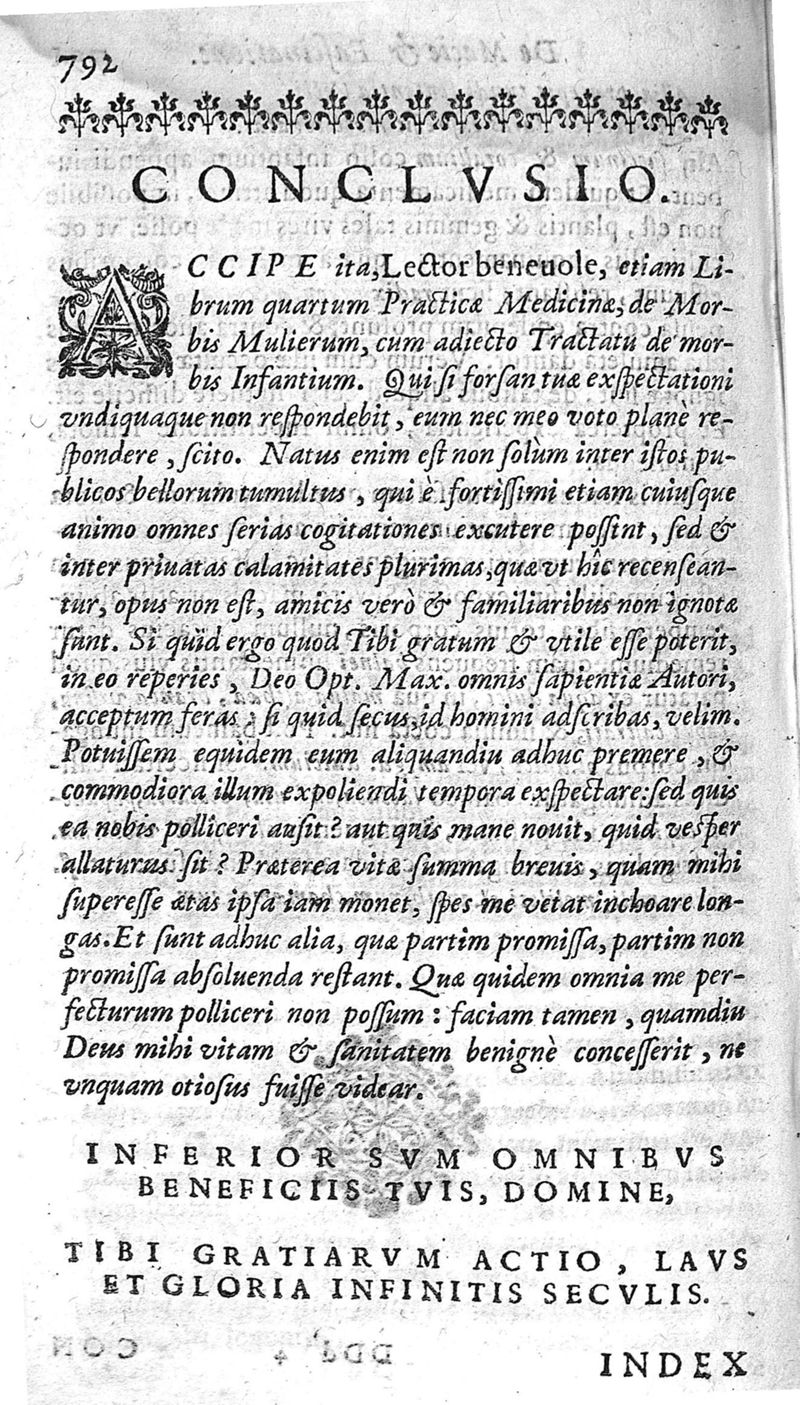 792
CONCLVSIO.
ACCIPE ita, Lector beneuole, etiam Li-
brum quartum Practicæ Medicinæ, de Mor-
bis Mulierum, cum adiecto Tractatu de mor-
bis Infantium. Qui si forsan tuæ exspectationi
vndiquaque non respondebit, eum nec meo voto planè re-
spondere, scito. Natus enim est non solùm inter istos pu-
blicos bellorum tumultus, qui è fortissimi etiam cuiusque
animo omnes serias cogitationes excutere possint, sed &
inter priuatas calamitates plurimas, quæ vt hîc recensean-
tur, opus non est, amicis verò & familiaribus non ignotæ
sunt. Si quid ergo quod Tibi gratum & vtile esse poterit,
in eo reperies, Deo Opt. Max. omnis sapientiæ Autori,
acceptum feras: si quid secus, id homini adscribas, velim.
Potuissem equidem eum aliquandiu adhuc premere, &
commodiora illum expoliendi tempora exspectare: sed quis
ea nobis polliceri ausit? aut quis mane nouit, quid vesper
allaturus sit? Præterea vitæ summa breuis, quam mihi
superesse ætas ipsa iam monet, spes me vetat inchoare lon-
gas. Et sunt adhuc alia, quæ partim promissa, partim non
promissa absoluenda restant. Quæ quidem omnia me per-
fecturum polliceri non possum: faciam tamen, quamdiu
Deus mihi vitam & sanitatem benignè concesserit, ne
vnquam otiosus fuisse videar.
INFERIOR SVM OMNIBVS
BENEFICIIS TVIS, DOMINE,
TIBI GRATIARVM ACTIO, LAVS
ET GLORIA INFINITIS SECVLIS.
INDEX